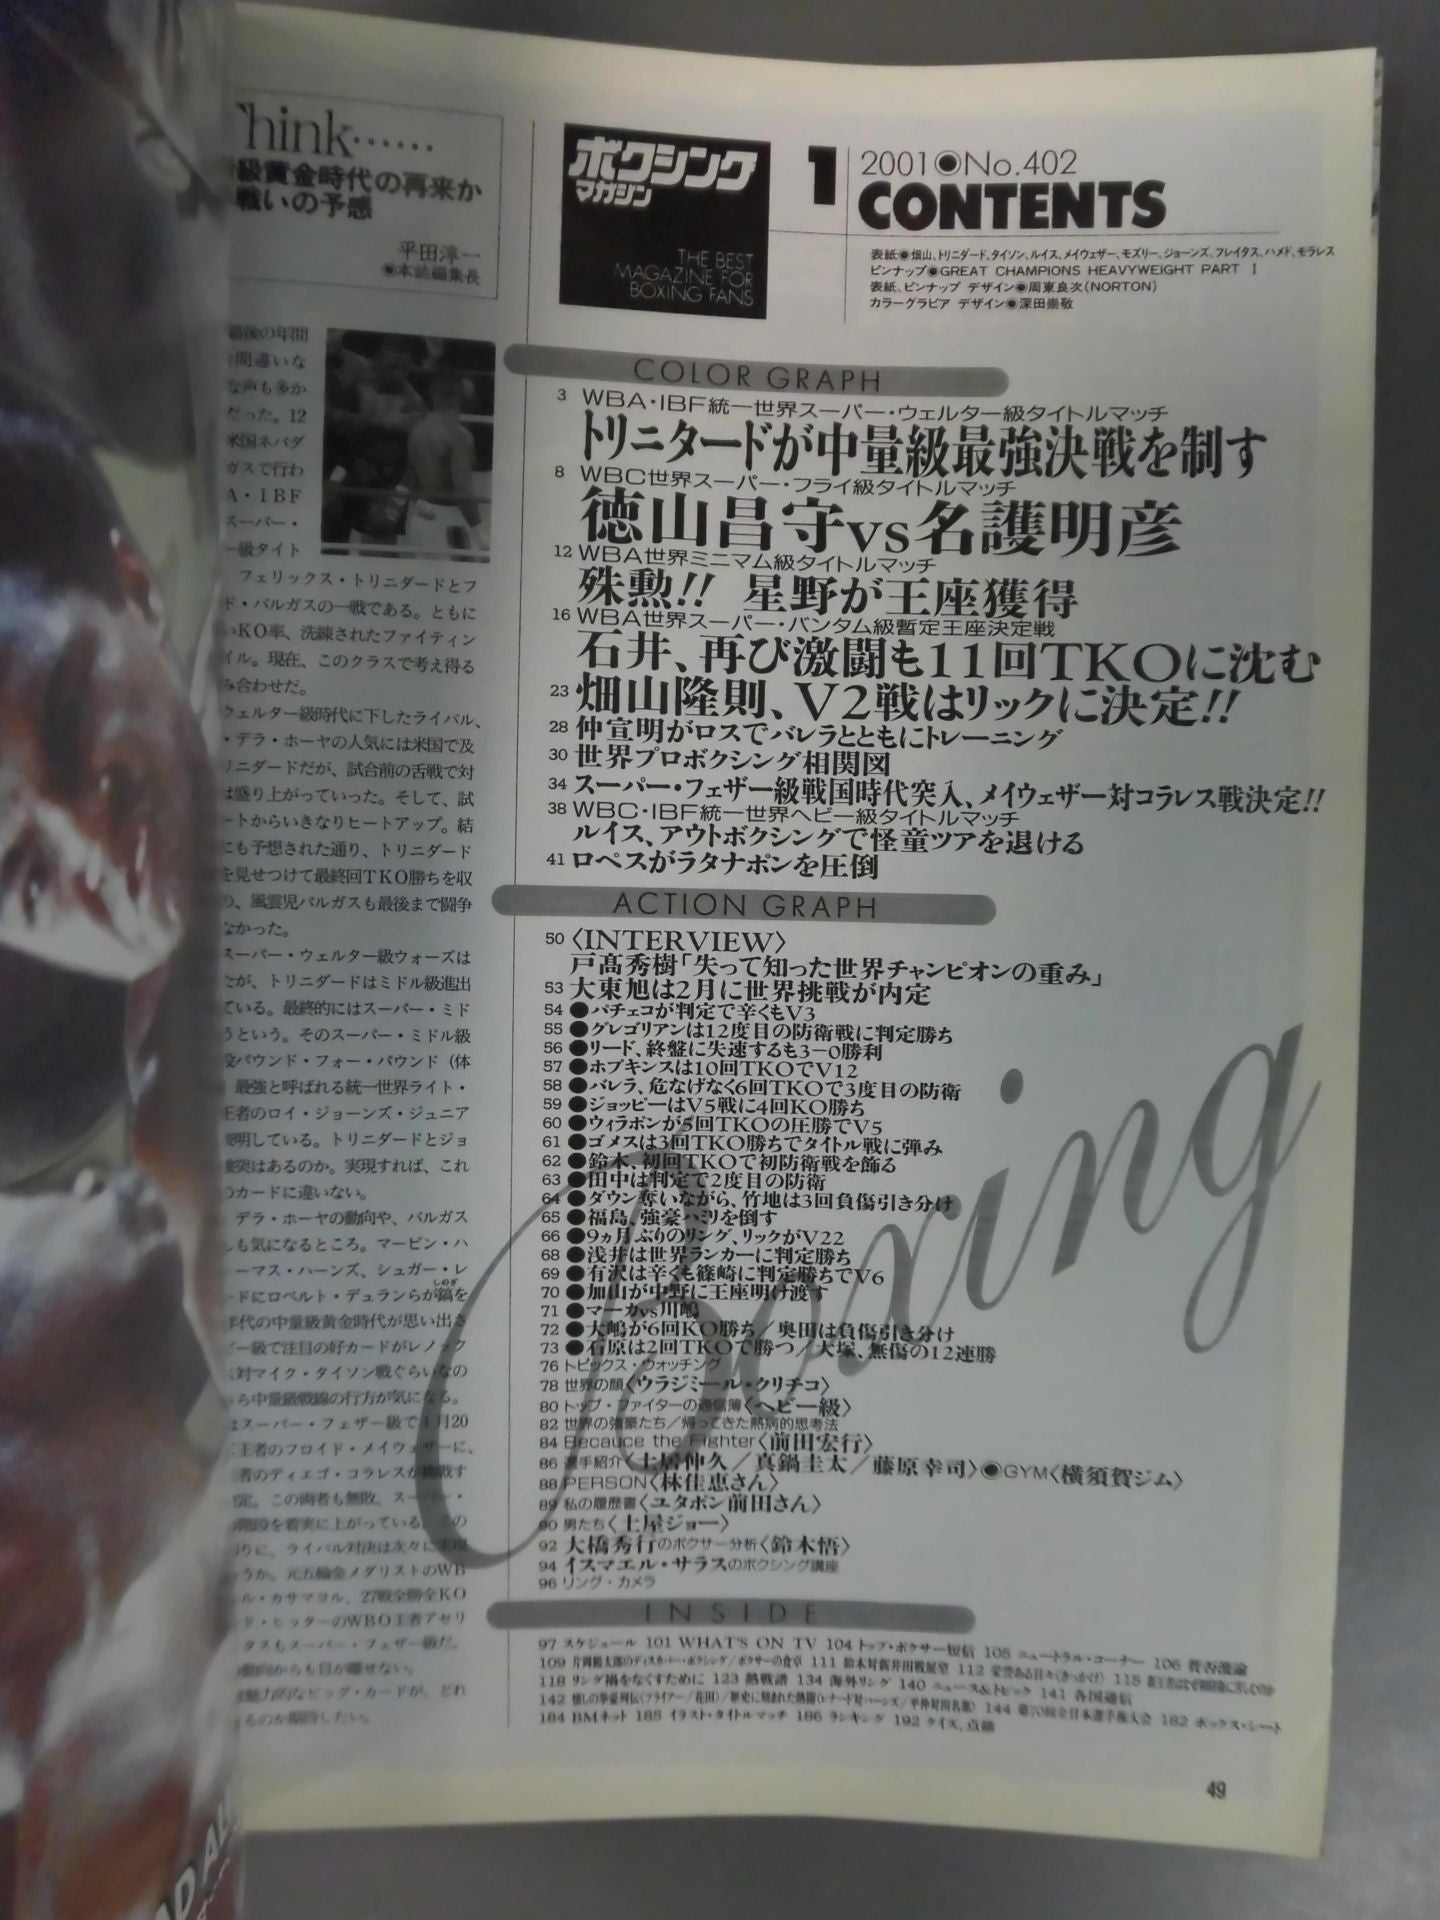 Think……
級黄金時代の再来か
戦いの予感
平田淳一
◉本誌編集長
最後の年間
間違いな
な声も多か
だった。12
米国ネバダ
ガスで行わ
A・IBF
スーパー・
ー級タイト
フェリックス・トリニダードとフ
ド・バルガスの一戦である。ともに
いKO率、洗練されたファイティン
イル。現在、このクラスで考え得る
み合わせだ。
ウェルター級時代に下したライバル、
・デラ・ホーヤの人気には米国で及
リニダードだが、試合前の舌戦で対
は盛り上がっていった。そして、試
ートからいきなりヒートアップ。結
にも予想された通り、トリニダード
を見せつけて最終回TKO勝ちを収
の、風雲児バルガスも最後まで闘争
なかった。
スーパー・ウェルター級ウォーズは
たが、トリニダードはミドル級進出
ている。最終的にはスーパー・ミド
うという。そのスーパー・ミドル級
パウンド・フォー・パウンド（体
最強と呼ばれる統一世界ライト・
王者のロイ・ジョーンズ・ジュニア
明している。トリニダードとジョ
突はあるのか。実現すれば、これ
のカードに違いない。
デラ・ホーヤの動向や、バルガス
も気になるところ。マービン・ハ
ーマス・ハーンズ、シュガー・レ
ードにロベルト・デュランらが鎬を
しのぎ
年代の中量級黄金時代が思い出さ
ー級で注目の好カードがレノック
対マイク・タイソン戦ぐらいなの
ら中量級戦線の行方が気になる。
はスーパー・フェザー級で1月20
王者のフロイド・メイウェザーに、
者のディエゴ・コラレスが挑戦す
定。この両者も無敗。スーパー・
階段を着実に上がっている。この
りに、ライバル対決は次々に実現
うか。元五輪金メダリストのWB
ル・カサマヨル、27戦全勝全KO
ド・ヒッターのWBO王者アセリ
タスもスーパー・フェザー級だ。
動向からも目が離せない。
魅力的なビッグ・カードが、どれ
るのか期待したい。
ボクシング
マガジン
THE BEST
MAGAZINE FOR
BOXING FANS
1
2001◉No.402
CONTENTS
表紙◉畑山、トリニダード、タイソン、ルイス、メイウェザー、モズリー、ジョーンズ、フレイタス、ハメド、モラレス
ピンナップ◉GREAT CHAMPIONS HEAVYWEIGHT PART Ⅰ
表紙、ピンナップ デザイン◉周東良次(NORTON)
カラーグラビア デザイン◉深田崇敬
COLOR GRAPH
3 WBA・IBF統一世界スーパー・ウェルター級タイトルマッチ
トリニタードが中量級最強決戦を制す
8 WBC世界スーパー・フライ級タイトルマッチ
徳山昌守vs名護明彦
12 WBA世界ミニマム級タイトルマッチ
殊勲!! 星野が王座獲得
16 WBA世界スーパー・バンタム級暫定王座決定戦
石井、再び激闘も11回TKOに沈む
23 畑山隆則、V2戦はリックに決定!!
28 仲宣明がロスでバレラとともにトレーニング
30 世界プロボクシング相関図
34 スーパー・フェザー級戦国時代突入、メイウェザー対コラレス戦決定!!
38 WBC・IBF統一世界ヘビー級タイトルマッチ
ルイス、アウトボクシングで怪童ツアを退ける
41 ロペスがラタナポンを圧倒
ACTION GRAPH
50〈INTERVIEW〉
戸髙秀樹「失って知った世界チャンピオンの重み」
53 大東旭は2月に世界挑戦が内定
54 ●パチェコが判定で辛くもV3
55 ●グレゴリアンは12度目の防衛戦に判定勝ち
56 ●リード、終盤に失速するも3−0勝利
57 ●ホプキンスは10回TKOでV12
58 ●バレラ、危なげなく6回TKOで3度目の防衛
59 ●ジョッピーはV5戦に4回KO勝ち
60 ●ウィラポンが5回TKOの圧勝でV5
61 ●ゴメスは3回TKO勝ちでタイトル戦に弾み
62 ●鈴木、初回TKOで初防衛戦を飾る
63 ●田中は判定で2度目の防衛
64 ●ダウン奪いながら、竹地は3回負傷引き分け
65 ●福島、強豪ハミリを倒す
66 ●9ヵ月ぶりのリング、リックがV22
68 ●浅井は世界ランカーに判定勝ち
69 ●有沢は辛くも篠崎に判定勝ちでV6
70 ●加山が中野に王座明け渡す
71 ●マーカvs川嶋
72 ●大嶋が6回KO勝ち／奥田は負傷引き分け
73 ●石原は2回TKOで勝つ／大塚、無傷の12連勝
76 トピックス・ウォッチング
78 世界の顔〈ウラジミール・クリチコ〉
80 トップ・ファイターの通信簿〈ヘビー級〉
82 世界の強豪たち／帰ってきた熱病的思考法
84 Becauce the Fighter〈前田宏行〉
86 選手紹介〈土居伸久／真鍋圭太／藤原幸司〉●GYM〈横須賀ジム〉
88 PERSON〈林佳恵さん〉
89 私の履歴書〈ユタポン前田さん〉
90 男たち〈土屋ジョー〉
92 大橋秀行のボクサー分析〈鈴木悟〉
94 イスマエル・サラスのボクシング講座
96 リング・カメラ
Boxing
INSIDE
97 スケジュール 101 WHAT'S ON TV 104 トップ・ボクサー短信 105 ニュートラル・コーナー 106 賛否激論
109 片岡鶴太郎のディスカバー・ボクシング／ボクサーの食卓 111 鈴木対新井田戦展望 112 栄誉ある日々〈きっかけ〉 115
118 リング禍をなくすために 123 熱戦譜 134 海外リング 140 ニュース&トピック 141 各国通信
142 懐しの拳豪列伝〈プライアー／花田〉／歴史に刻まれた熱闘〈レナード対ハーンズ／平仲対田名部〉 144 第70回全日本選手権大会 182 ボックス・シート
184 BMネット 185 イラスト・タイトルマッチ 186 ランキング 192 クイズ、点線
49